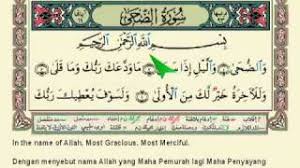 سُورَةُ الضُّحَى
بِسْمِ اللَّهِ الرَّحْمَٰنِ الرَّحِيمِ
وَالضُّحَى وَالَّيْلِ إِذَا سَجَى مَا وَدَّعَكَ رَبُّكَ وَمَا قَلَى
وَلَلْآخِرَةُ خَيْرٌ لَكَ مِنَ الْأُولَى وَلَسَوْفَ يُعْطِيكَ رَبُّكَ
In the name of Allah, Most Gracious, Most Merciful.
Dengan menyebut nama Allah yang Maha Pemurah lagi Maha Penyayang